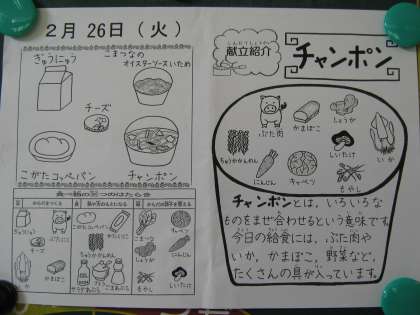 2月 26日（火）
ぎゅうにゅう
こまつなの
オイスターソースいため
チーズ
こがたコッペパン
チャンポン
こんだてしょうかい
献立紹介
チャンポン
ぶた肉
かまぼこ
しょうが
ちゅうかかんめん
しいたけ
いか
にんじん
キャベツ
もやし
チャンポンとは、いろいろな
ものをまぜ合わせるという意味です。
今日の給食には、ぶた肉や
いか、かまぼこ、野菜など、
たくさんの具が入っています。
ぎゅうにゅう
ぶた肉
チーズ
いか
かまぼこ
こがたコッペパン
ちゅうかかんめん
こまつな
キャベツ
しょうが
にんじん
もやし
しいたけ